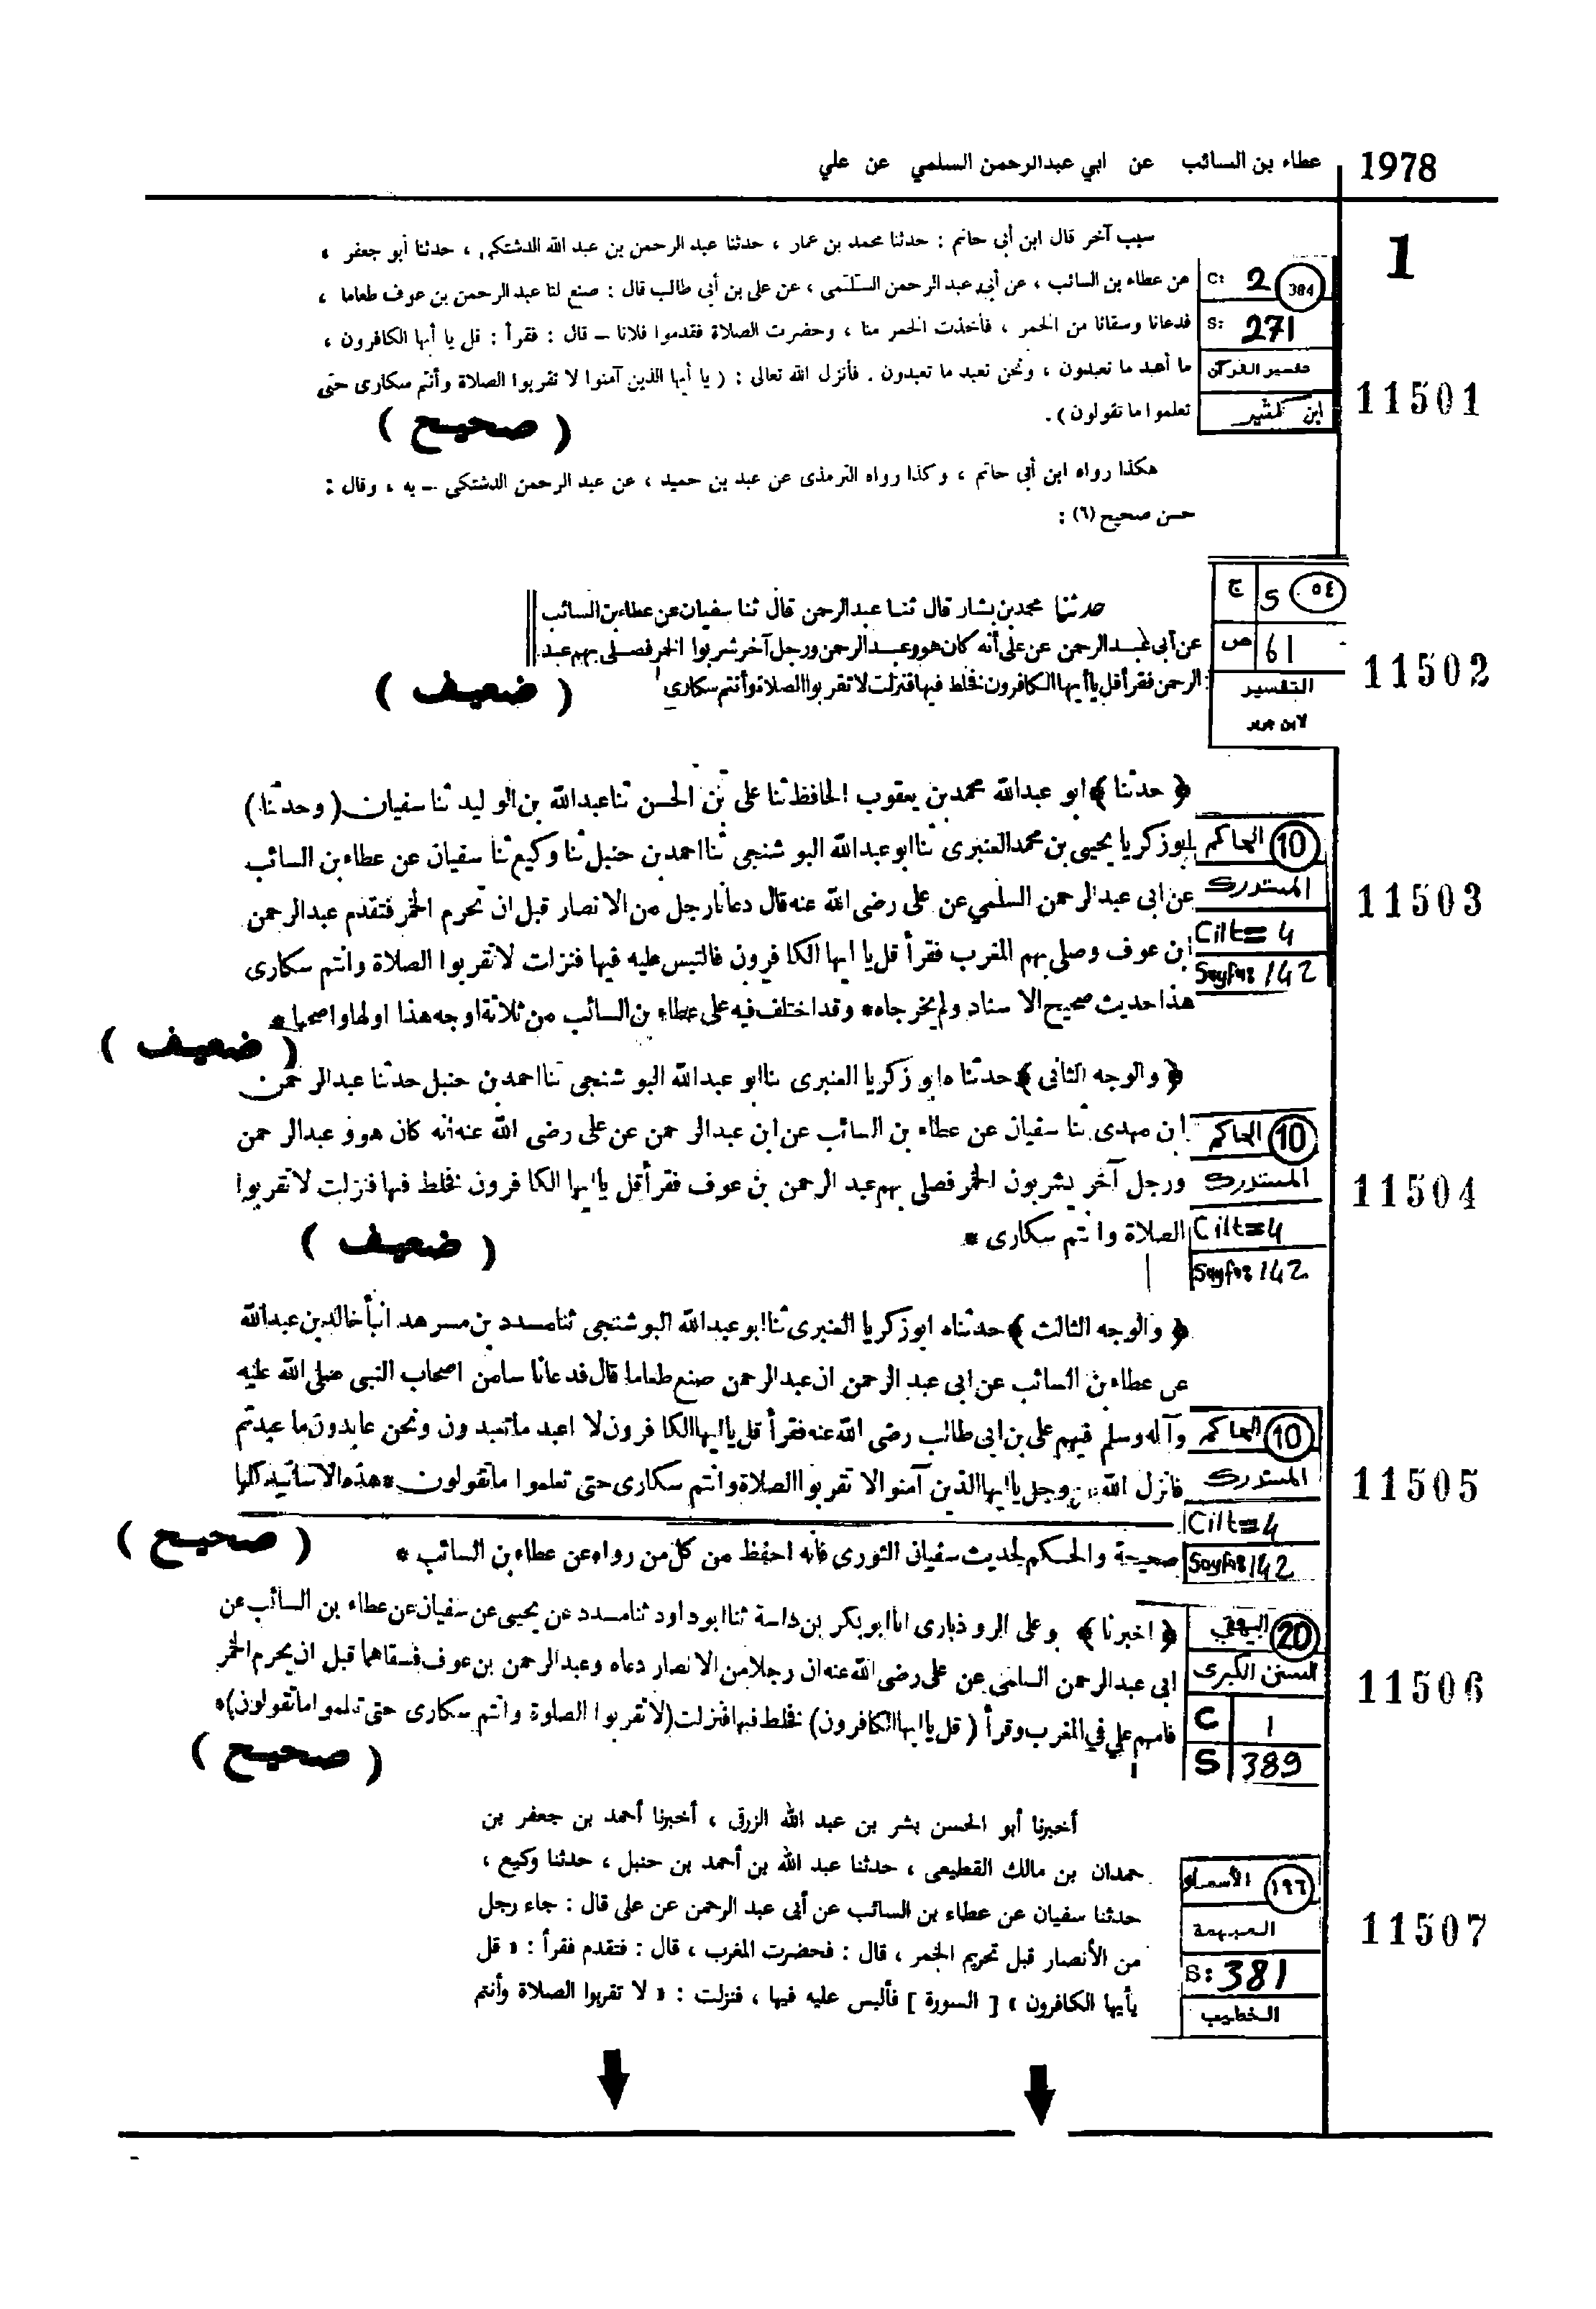 1978 عطاء بن السائب عن ابي عبدالرحمن السلمي عن علي
1
سبب آخر قال ابن أبى حاتم : حدثنا محمد بن عمار ، حدثنا عبد الرحمن بن عبد الله الدشتكى ، حدثنا أبو جعفر ،
عن عطاء بن السائب ، عن أبى عبد الرحمن السلمى ، عن على بن أبى طالب قال : صنع لنا عبد الرحمن بن عوف طعاما ،
فدعانا وسقانا من الخمر ، فأخذت الخمر منا ، وحضرت الصلاة فقدموا فلانا – قال : فقرأ : قل يا أيها الكافرون ،
ما أعبد ما تعبدون ، ونحن نعبد ما تعبدون . فأنزل الله تعالى : ( يا أيها الذين آمنوا لا تقربوا الصلاة وأنتم سكارى حتى
تعلموا ما تقولون ) .
( صحيح )
C: 2 384
S: 271
تفسير القرآن
ابن كثير
11501
هكذا رواه ابن أبى حاتم ، وكذا رواه الترمذى عن عبد بن حميد ، عن عبد الرحمن الدشتكى – به ، وقال :
حسن صحيح (٦) :
حدثنا محمد بن بشار قال ثنا عبد الرحمن قال ثنا سفيان عن عطاء بن السائب
عن أبى عبد الرحمن عن على أنه كان هو وعبد الرحمن ورجل آخر شربوا الخمر فصلى بهم عبد
الرحمن فقرأ قل يا أيها الكافرون نخلط فيها فنزلت لا تقربوا الصلاة وأنتم سكارى
( ضعيف )
ج 5 ٥٤
ص 61
التفسير
لابن جرير
11502
﴿ حدثنا ﴾ ابو عبدالله محمد بن يعقوب الحافظ ثنا على بن الحسن ثنا عبدالله بن الوليد ثنا سفيان (وحدثنا)
ابو زكريا يحيى بن محمد العنبرى ثنا ابو عبدالله البوشنجى ثنا احمد بن حنبل ثنا وكيع ثنا سفيان عن عطاء بن السائب
عن ابى عبد الرحمن السلمي عن على رضى الله عنه قال دعانا رجل من الانصار قبل ان تحرم الخمر فتقدم عبد الرحمن
ابن عوف وصلى بهم المغرب فقرأ قل يا ايها الكافرون فالتبس عليه فيها فنزلت لا تقربوا الصلاة وانتم سكارى
هذا حديث صحيح الاسناد ولم يخرجاه * وقد اختلف فيه على عطاء بن السائب من ثلاثة اوجه هذا اولها واصحها *
( ضعيف )
10 الحاكم
المستدرك
Cilt= 4
Sayfa: 142
11503
﴿ والوجه الثانى ﴾ حدثناه ابو زكريا العنبرى ثنا ابو عبدالله البوشنجى ثنا احمد بن حنبل حدثنا عبد الرحمن
ابن مهدى ثنا سفيان عن عطاء بن السائب عن ابن عبد الرحمن عن على رضى الله عنه انه كان هو و عبد الرحمن
ورجل آخر يشربون الخمر فصلى بهم عبد الرحمن بن عوف فقرأ قل يا ايها الكافرون نخلط فيها فنزلت لا تقربوا
الصلاة وانتم سكارى *
( ضعيف )
10 الحاكم
المستدرك
Cilt=4
Sayfa: 142
11504
﴿ والوجه الثالث ﴾ حدثناه ابو زكريا العنبرى ثنا ابو عبدالله البوشنجى ثنا مسدد بن مسرهد انبأ خالد بن عبدالله
عن عطاء بن السائب عن ابى عبد الرحمن ان عبد الرحمن صنع طعاما قال فدعا ناسا من اصحاب النبى صلى الله عليه
وآله وسلم فيهم على بن ابى طالب رضى الله عنه فقرأ قل يا ايها الكافرون لا اعبد ما تعبدون ونحن عابدون ما عبدتم
فانزل الله عز وجل يا ايها الذين آمنوا لا تقربوا الصلاة وانتم سكارى حتى تعلموا ما تقولون * هذه الاسانيد كلها
صحيحة والحكم لحديث سفيان الثورى فانه احفظ من كل من رواه عن عطاء بن السائب *
( صحيح )
10 الحاكم
المستدرك
Cilt=4
Sayfa: 142
11505
﴿ اخبرنا ﴾ وعلى الروذبارى انا ابو بكر بن داسة ثنا ابو داود ثنا مسدد عن يحيى عن سفيان عن عطاء بن السائب عن
ابى عبد الرحمن السلمى عن على رضى الله عنه ان رجلا من الانصار دعاه وعبد الرحمن بن عوف فسقاهما قبل ان يحرم الخمر
فامهم علي في المغرب وقرأ ( قل يا ايها الكافرون ) نخلط فيها فنزلت ( لا تقربوا الصلوة وانتم سكارى حتى تعلموا ما تقولون ) *
( صحيح )
20 البيهقي
السنن الكبرى
C 1
S 389
11506
أخبرنا أبو الحسن بشر بن عبد الله الزرقى ، أخبرنا أحمد بن جعفر بن
حمدان بن مالك القطيعى ، حدثنا عبد الله بن أحمد بن حنبل ، حدثنا وكيع ،
حدثنا سفيان عن عطاء بن السائب عن أبى عبد الرحمن عن على قال : جاء رجل
من الأنصار قبل تحريم الخمر ، قال : فحضرت المغرب ، قال : فتقدم فقرأ : « قل
يأيها الكافرون » [ السورة ] فألبس عليه فيها ، فنزلت : « لا تقربوا الصلاة وأنتم
١٩٦ الأسماء
المبهمة
S: 381
الخطيب
11507